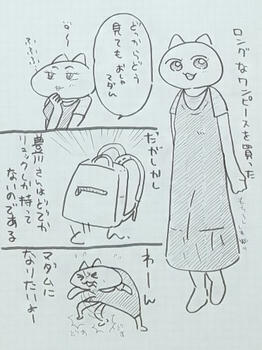 ロングなワンピースを買った
どっからどう
見てもおしゃ
マダム
ふふふ
だがしかし
豊川さんはどうやら
リュックしか持って
ないのである
わーん
マダムに
なりたいよー